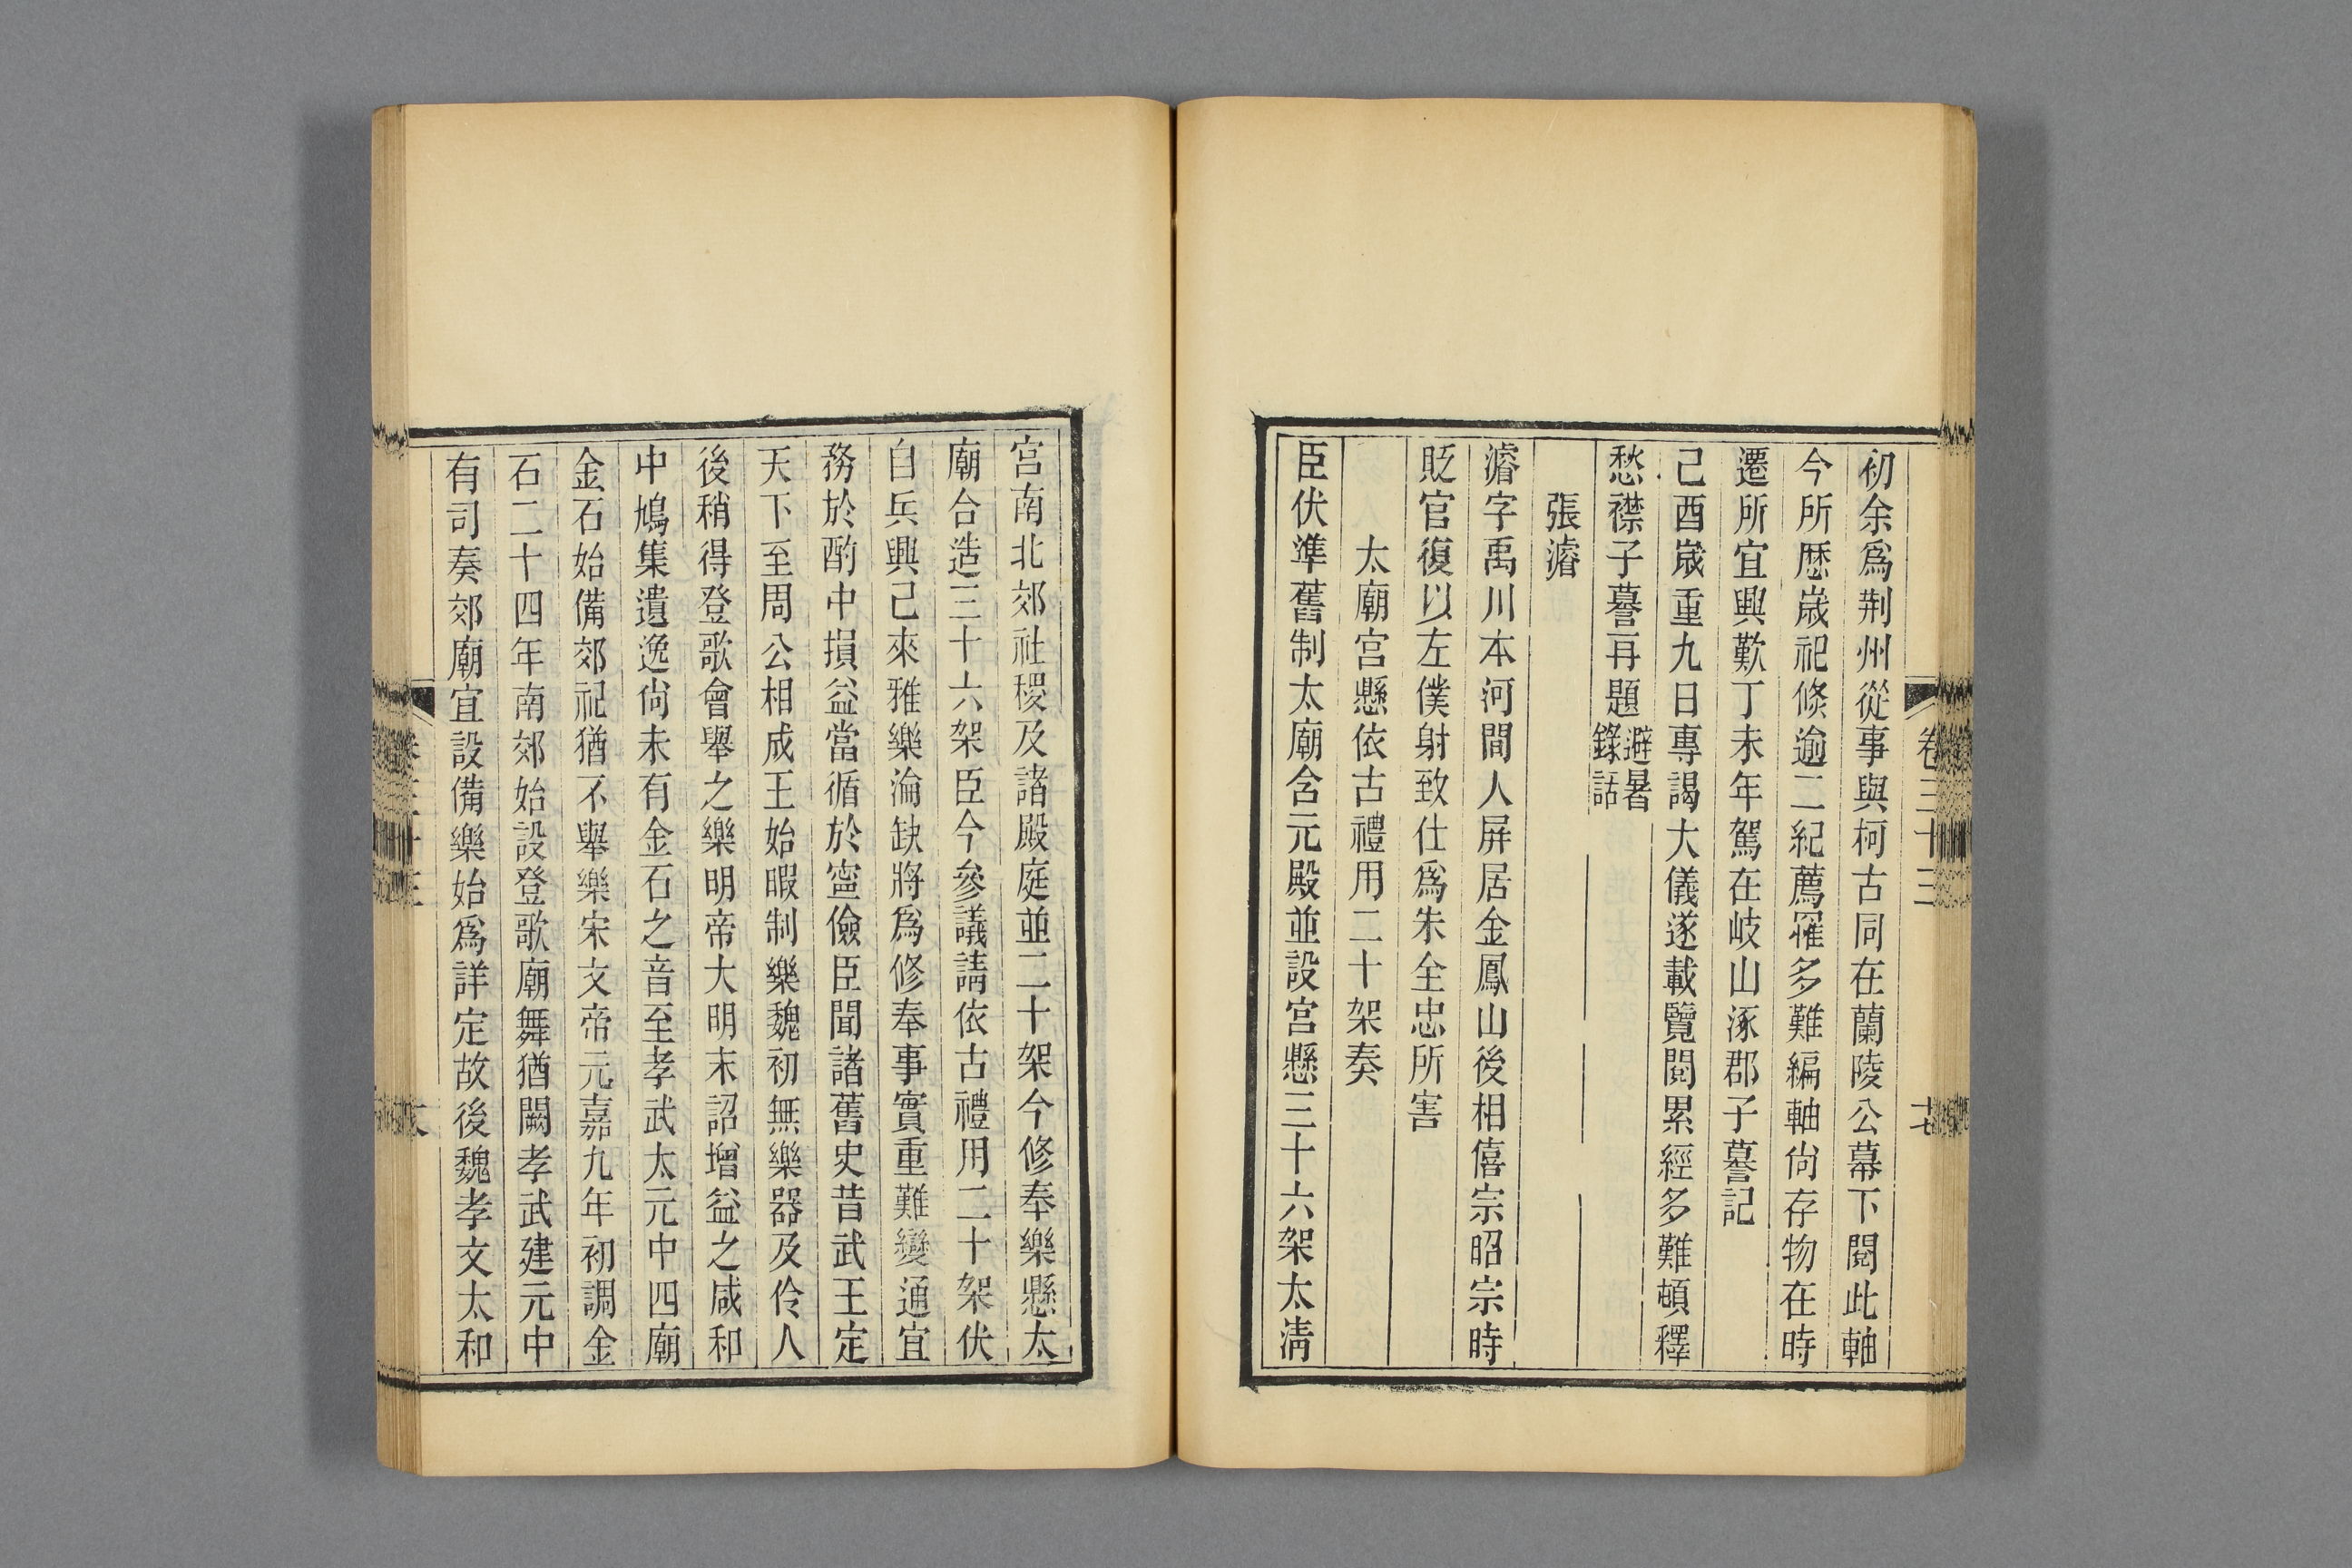 初余爲荆州從事與柯古同在蘭陵公幕下閱此軸
今所歷歲祀倏逾二紀薦罹多難編軸尙存物在時
遷所宜興歎丁未年駕在岐山涿郡子謩記
己酉歲重九日專謁大儀遂載覽閱累經多難頓釋
愁襟子謩再題避暑錄話
張濬
濬字禹川本河間人屏居金鳳山後相僖宗昭宗時
貶官復以左僕射致仕爲朱全忠所害
太廟宮懸依古禮用二十架奏
臣伏準舊制太廟含元殿並設宮懸三十六架太淸
卷三十三
十七
宮南北郊社稷及諸殿庭並二十架今修奉樂懸太
廟合造三十六架臣今參議請依古禮用二十架伏
自兵興已來雅樂淪缺將爲修奉事實重難變通宜
務於酌中損益當循於寍儉臣聞諸舊史昔武王定
天下至周公相成王始暇制樂魏初無樂器及伶人
後稍得登歌會舉之樂明帝大明末詔增益之咸和
中鳩集遺逸尙未有金石之音至孝武太元中四廟
金石始備郊祀猶不舉樂宋文帝元嘉九年初調金
石二十四年南郊始設登歌廟舞猶闕孝武建元中
有司奏郊廟宜設備樂始爲詳定故後魏孝文太和